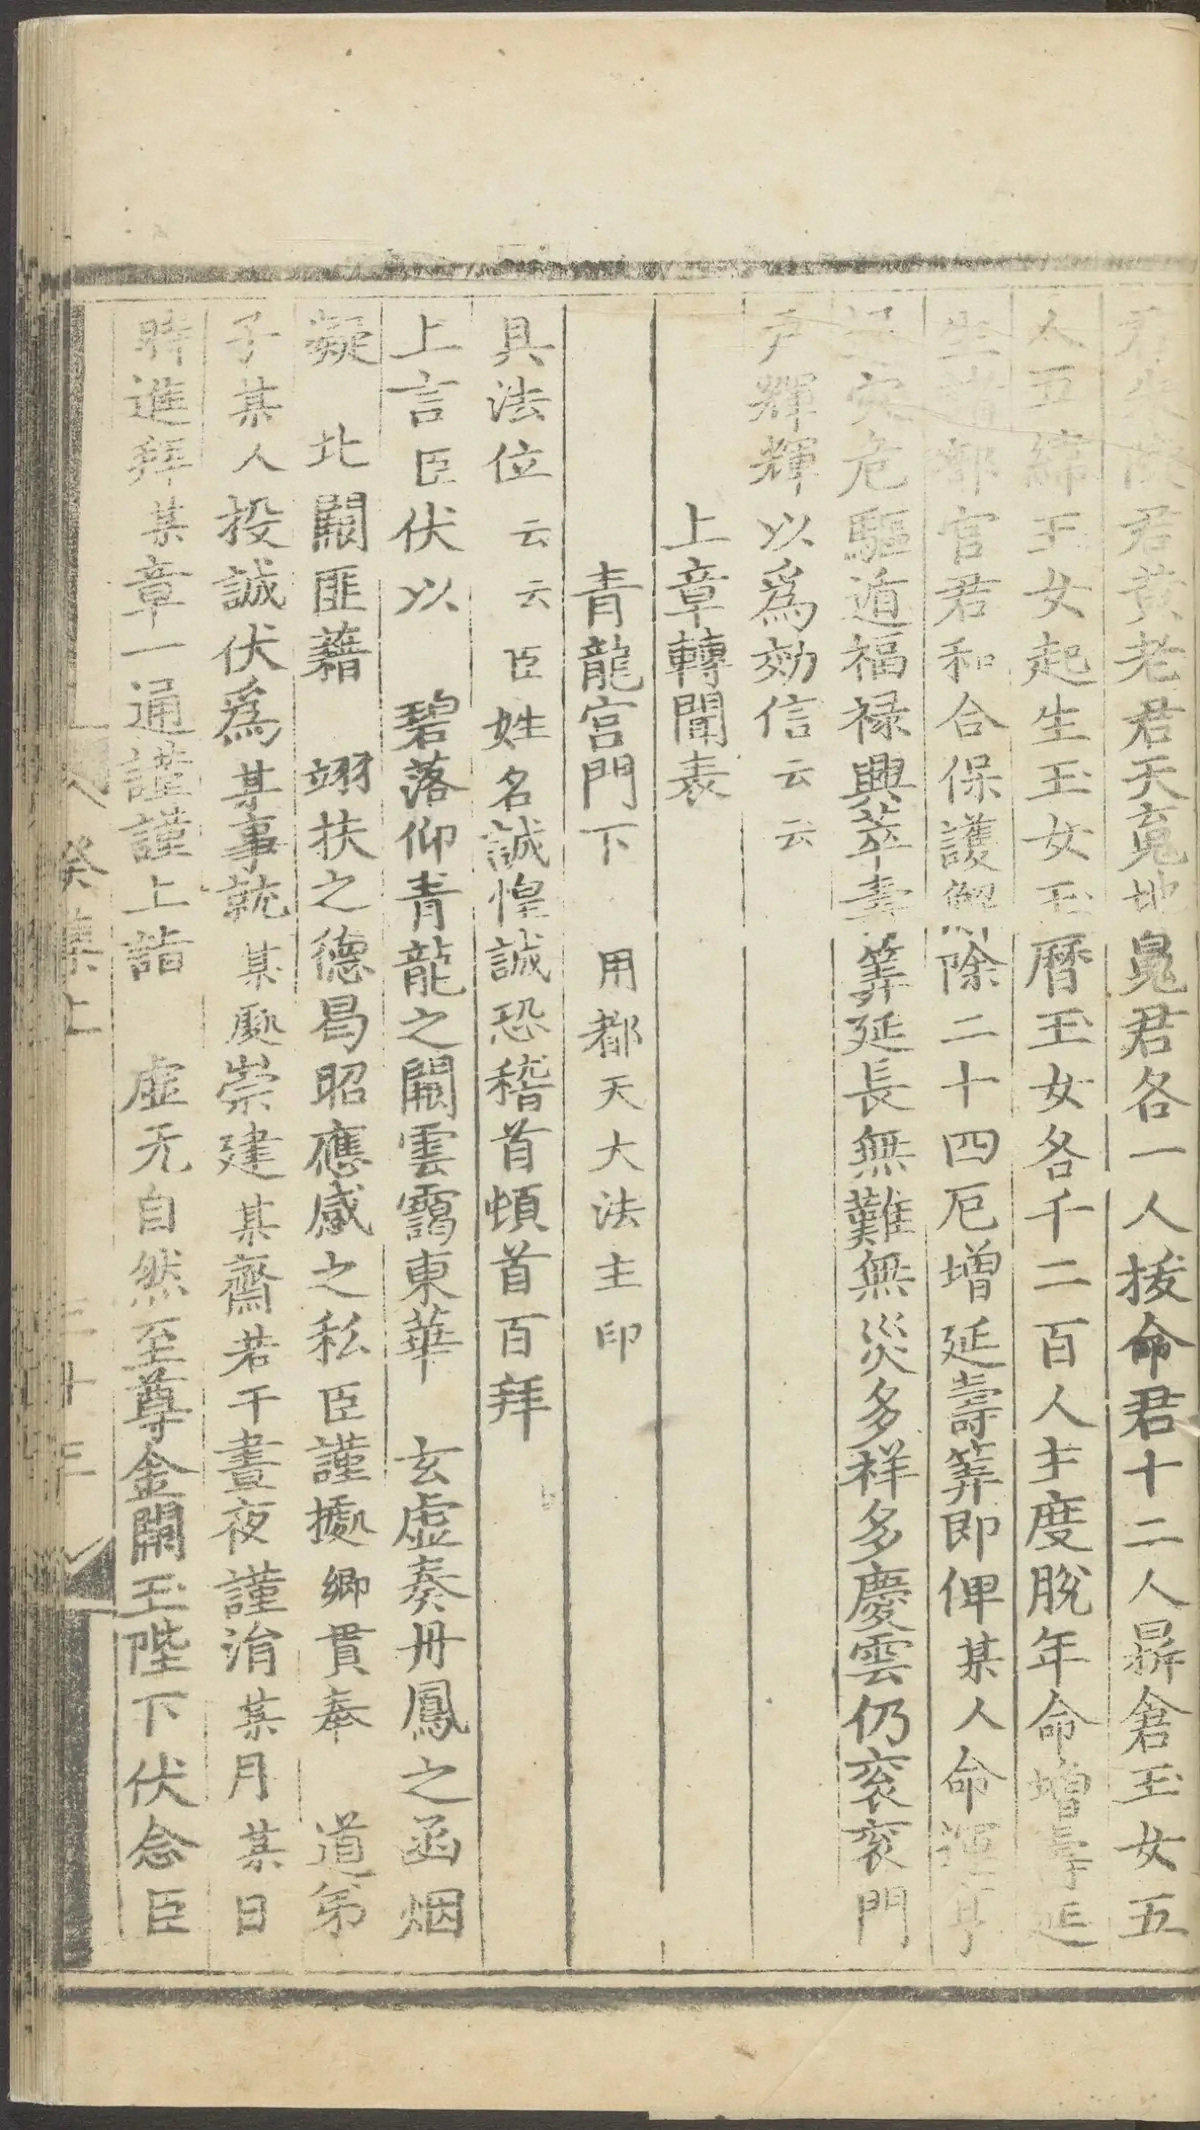 君黄老君天䰟地䰟君各一人拔命君十二人羅倉玉女五
人五緯玉女起生玉女玉曆玉女各千二百人主度脫年命增壽延
官君和合保護解除二十四厄增延壽筭即俾某人命運亨
危驅遁福禄興萃壽筭延長無難無災多祥多慶雲仍衮衮門
戶輝輝以爲効信云云
上章轉聞表
青龍宮門下 用都天大法主印
具法位云云臣姓名誠惶誠恐稽首頓首百拜
上言臣伏以 碧落仰青龍之闕雲靄東華 玄虛奏丹鳳之函烟
凝 北闕匪藉 翊扶之德曷昭應感之私臣謹據鄉貫奉 道弟
子某人投誠伏爲某事就某處崇建某齋若干晝夜謹涓某月某日
時進拜某章一通謹謹上詣 虛无自然至尊金闕玉陛下伏念臣
癸集上 三十三